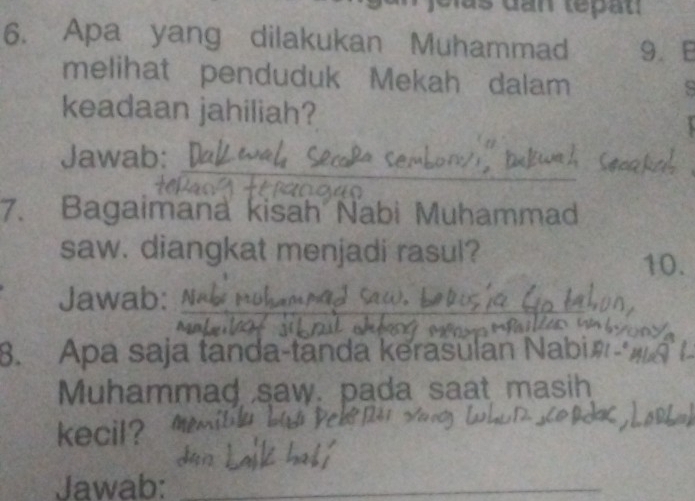 jelas dan tepat!
6. Apa yang dilakukan Muhammad
melihat penduduk Mekah dalam
keadaan jahiliah?
Jawab: Dakwah secara sembunyi", Dakwah secarah
terang terangan
7. Bagaimana kisah Nabi Muhammad
saw. diangkat menjadi rasul?
Jawab: Nabi mohammad saw. berusia 40 tahun,
malaikat jibril datang menyampaikan wahyunya
8. Apa saja tanda-tanda kerasulan Nabi
Muhammad saw. pada saat masih
kecil? memiliki budi pekerti yang luhur, cerdas,
dan baik hati
Jawab:
9.
10.